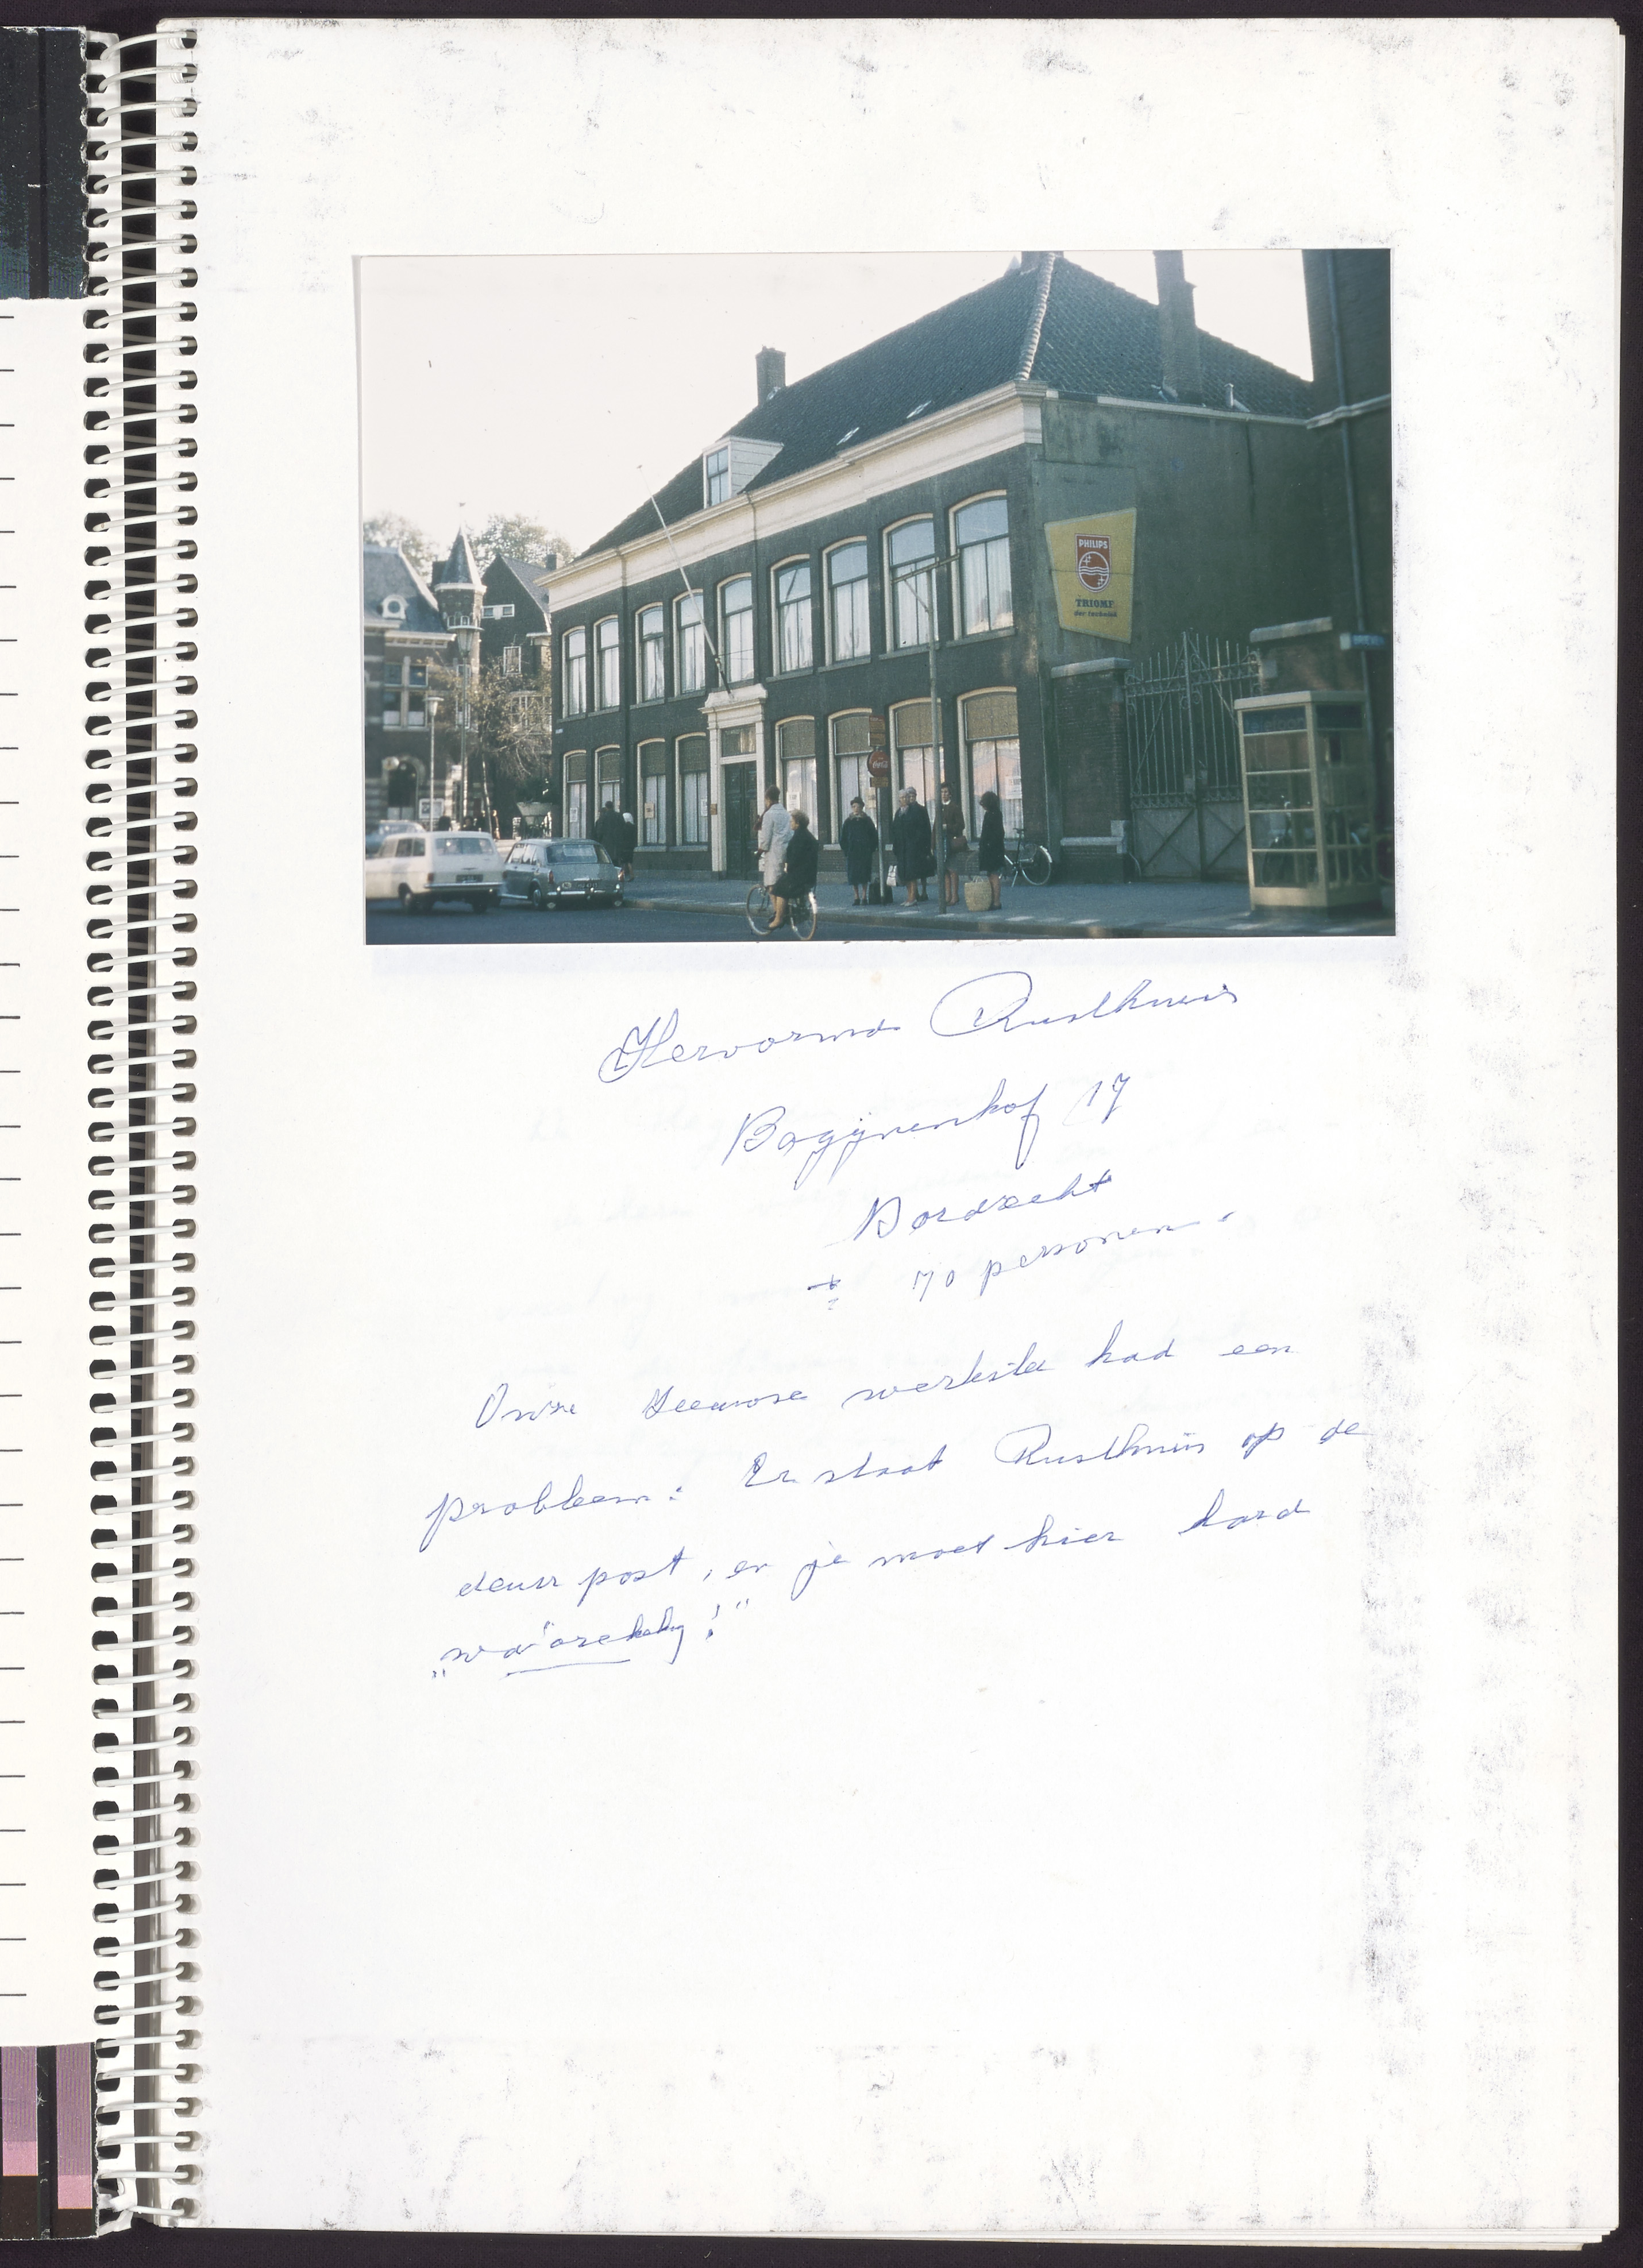 PHILIPS
TRIOMF
der techniek
telefoon
Hervormd Rusthuis
Bagijnenhof 17
Dordrecht
± 70 personen.
Onze Zeeuwse werkster had een
probleem: Er staat Rusthuis op de
deur post, en je moet hier hard